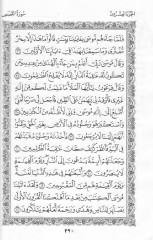 الجزء العشرون سورة القصص
فَلَمَّا جَاءَهُم مُّوسَىٰ بِـَٔايَٰتِنَا بَيِّنَٰتٍ قَالُوا۟ مَا هَٰذَآ إِلَّا سِحْرٌ
مُّفْتَرًى وَمَا سَمِعْنَا بِهَٰذَا فِىٓ ءَابَآئِنَا ٱلْأَوَّلِينَ ٣٦
وَقَالَ مُوسَىٰ رَبِّىٓ أَعْلَمُ بِمَن جَآءَ بِٱلْهُدَىٰ مِنْ عِندِهِۦ وَمَن
تَكُونُ لَهُۥ عَٰقِبَةُ ٱلدَّارِ إِنَّهُۥ لَا يُفْلِحُ ٱلظَّٰلِمُونَ ٣٧
وَقَالَ فِرْعَوْنُ يَٰٓأَيُّهَا ٱلْمَلَأُ مَا عَلِمْتُ لَكُم مِّنْ إِلَٰهٍ غَيْرِى
فَأَوْقِدْ لِى يَٰهَٰمَٰنُ عَلَى ٱلطِّينِ فَٱجْعَل لِّى صَرْحًا لَّعَلِّىٓ أَطَّلِعُ
إِلَىٰٓ إِلَٰهِ مُوسَىٰ وَإِنِّى لَأَظُنُّهُۥ مِنَ ٱلْكَٰذِبِينَ ٣٨
وَٱسْتَكْبَرَ هُوَ وَجُنُودُهُۥ فِى ٱلْأَرْضِ بِغَيْرِ ٱلْحَقِّ وَظَنُّوٓا۟
أَنَّهُمْ إِلَيْنَا لَا يُرْجَعُونَ ٣٩ فَأَخَذْنَٰهُ وَجُنُودَهُۥ فَنَبَذْنَٰهُمْ
فِى ٱلْيَمِّ فَٱنظُرْ كَيْفَ كَانَ عَٰقِبَةُ ٱلظَّٰلِمِينَ ٤٠
وَجَعَلْنَٰهُمْ أَئِمَّةً يَدْعُونَ إِلَى ٱلنَّارِ وَيَوْمَ ٱلْقِيَٰمَةِ
لَا يُنصَرُونَ ٤١ وَأَتْبَعْنَٰهُمْ فِى هَٰذِهِ ٱلدُّنْيَا لَعْنَةً وَيَوْمَ
ٱلْقِيَٰمَةِ هُم مِّنَ ٱلْمَقْبُوحِينَ ٤٢ وَلَقَدْ ءَاتَيْنَا مُوسَى
ٱلْكِتَٰبَ مِنۢ بَعْدِ مَآ أَهْلَكْنَا ٱلْقُرُونَ ٱلْأُولَىٰ
بَصَآئِرَ لِلنَّاسِ وَهُدًى وَرَحْمَةً لَّعَلَّهُمْ يَتَذَكَّرُونَ ٤٣
٣٩٠